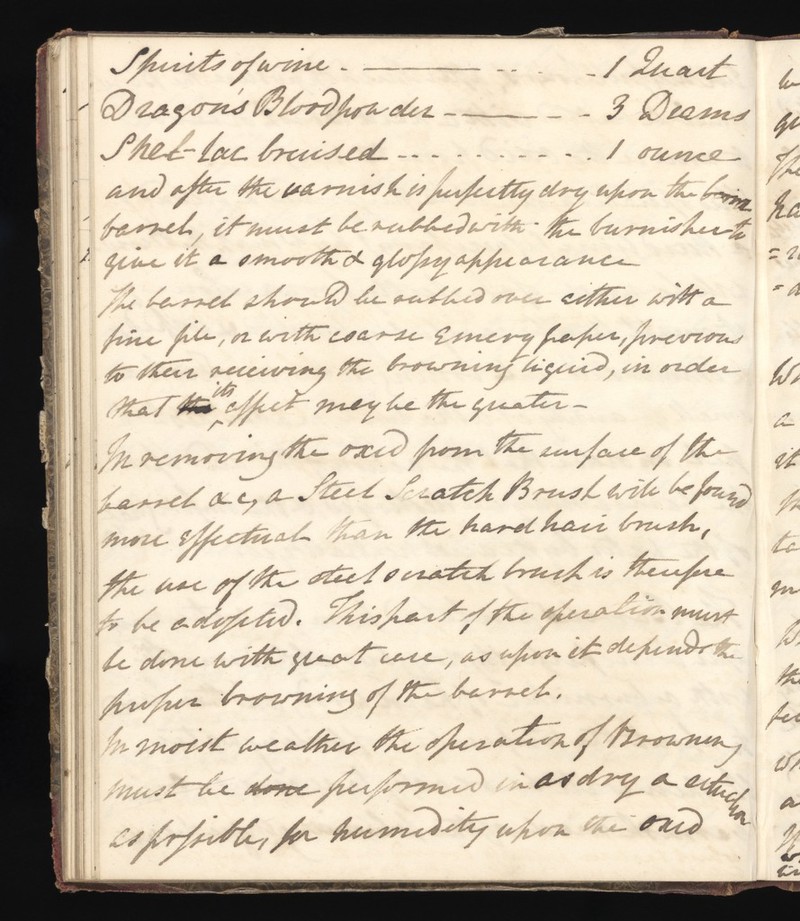 Spirits of wine - 1 Quart
Dragon's Blood powder - 3 Drams
Shel-lac bruised - 1 ounce
and after the varnish is perfectly dry upon the
barrel, it must be rubbed with the burnisher to
give it a smooth & glossy appearance
The barrel should be rubbed over either with a
fine file, or with coarse Emery paper, previous
to their receiving the browning liquid, in order
that the its effect may be the greater -
In removing the oxid from the surface of the
barrel &c, a Steel Scratch Brush will be found
more effectual than the hard hair brush,
the use of the steel scratch brush is therefore
to be adopted. This part of the operation must
be done with great care, as upon it depends the
proper browning of the barrel.
In moist weather the operation of Browning
must be done performed in as dry a situation
as possible, for humidity upon the oxid